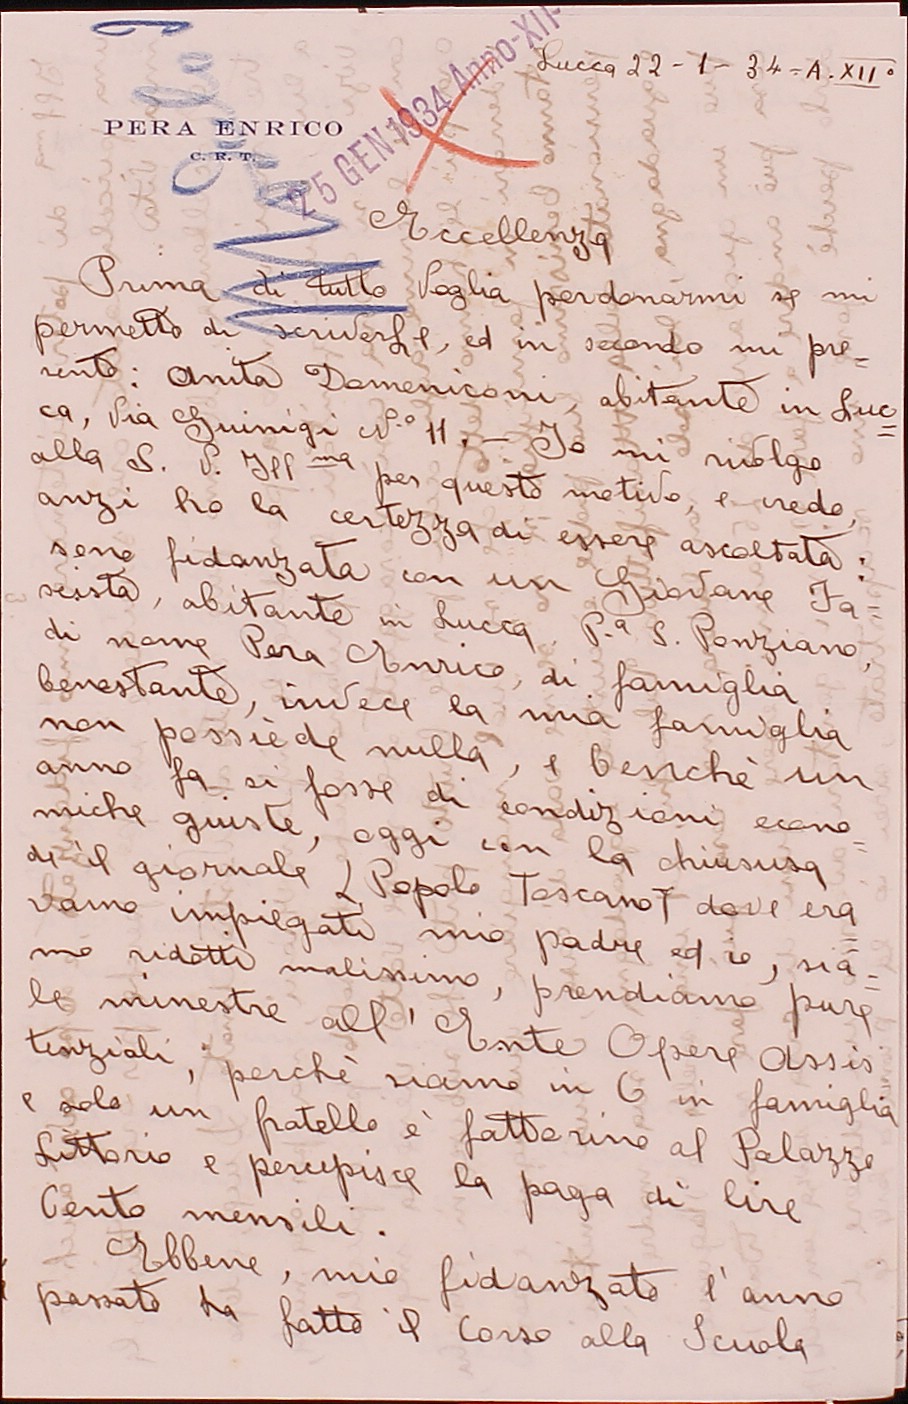 Lucca 22-1-34-A.XII°
PERA ENRICO
C. R. T.
25 GEN 1934 Anno-XII-
Eccellenza
Prima di tutto Voglia perdonarmi se mi
permetto di scriverLe, ed in secondo mi pre=
sento: Anita Domeniconi, abitante in Luc=
ca, Via Guinigi N.° 11. — Io mi rivolgo
alla S. V. Ill ma per questo motivo, e credo,
anzi ho la certezza di essere ascoltata:
sono fidanzata con un Giovane Fa=
scista, abitante in Lucca, P.a S. Ponziano,
di nome Pera Enrico, di famiglia
benestante, invece la mia famiglia
non possiede nulla, e benchè un
anno fa si fosse di condizioni econo=
miche giuste, oggi con la chiusura
de il giornale (Popolo Toscano) dove era=
vamo impiegati mio padre ed io, sia=
mo ridotti malissimo, prendiamo pure
le minestre all'Ente Opere Assis
tenziali, perchè siamo in 6 in famiglia
e solo un fratello è fattorino al Palazzo
Littorio e percepisce la paga di lire
Cento mensili.
Ebbene, mio fidanzato l'anno
passato ha fatto il Corso alla Scuola